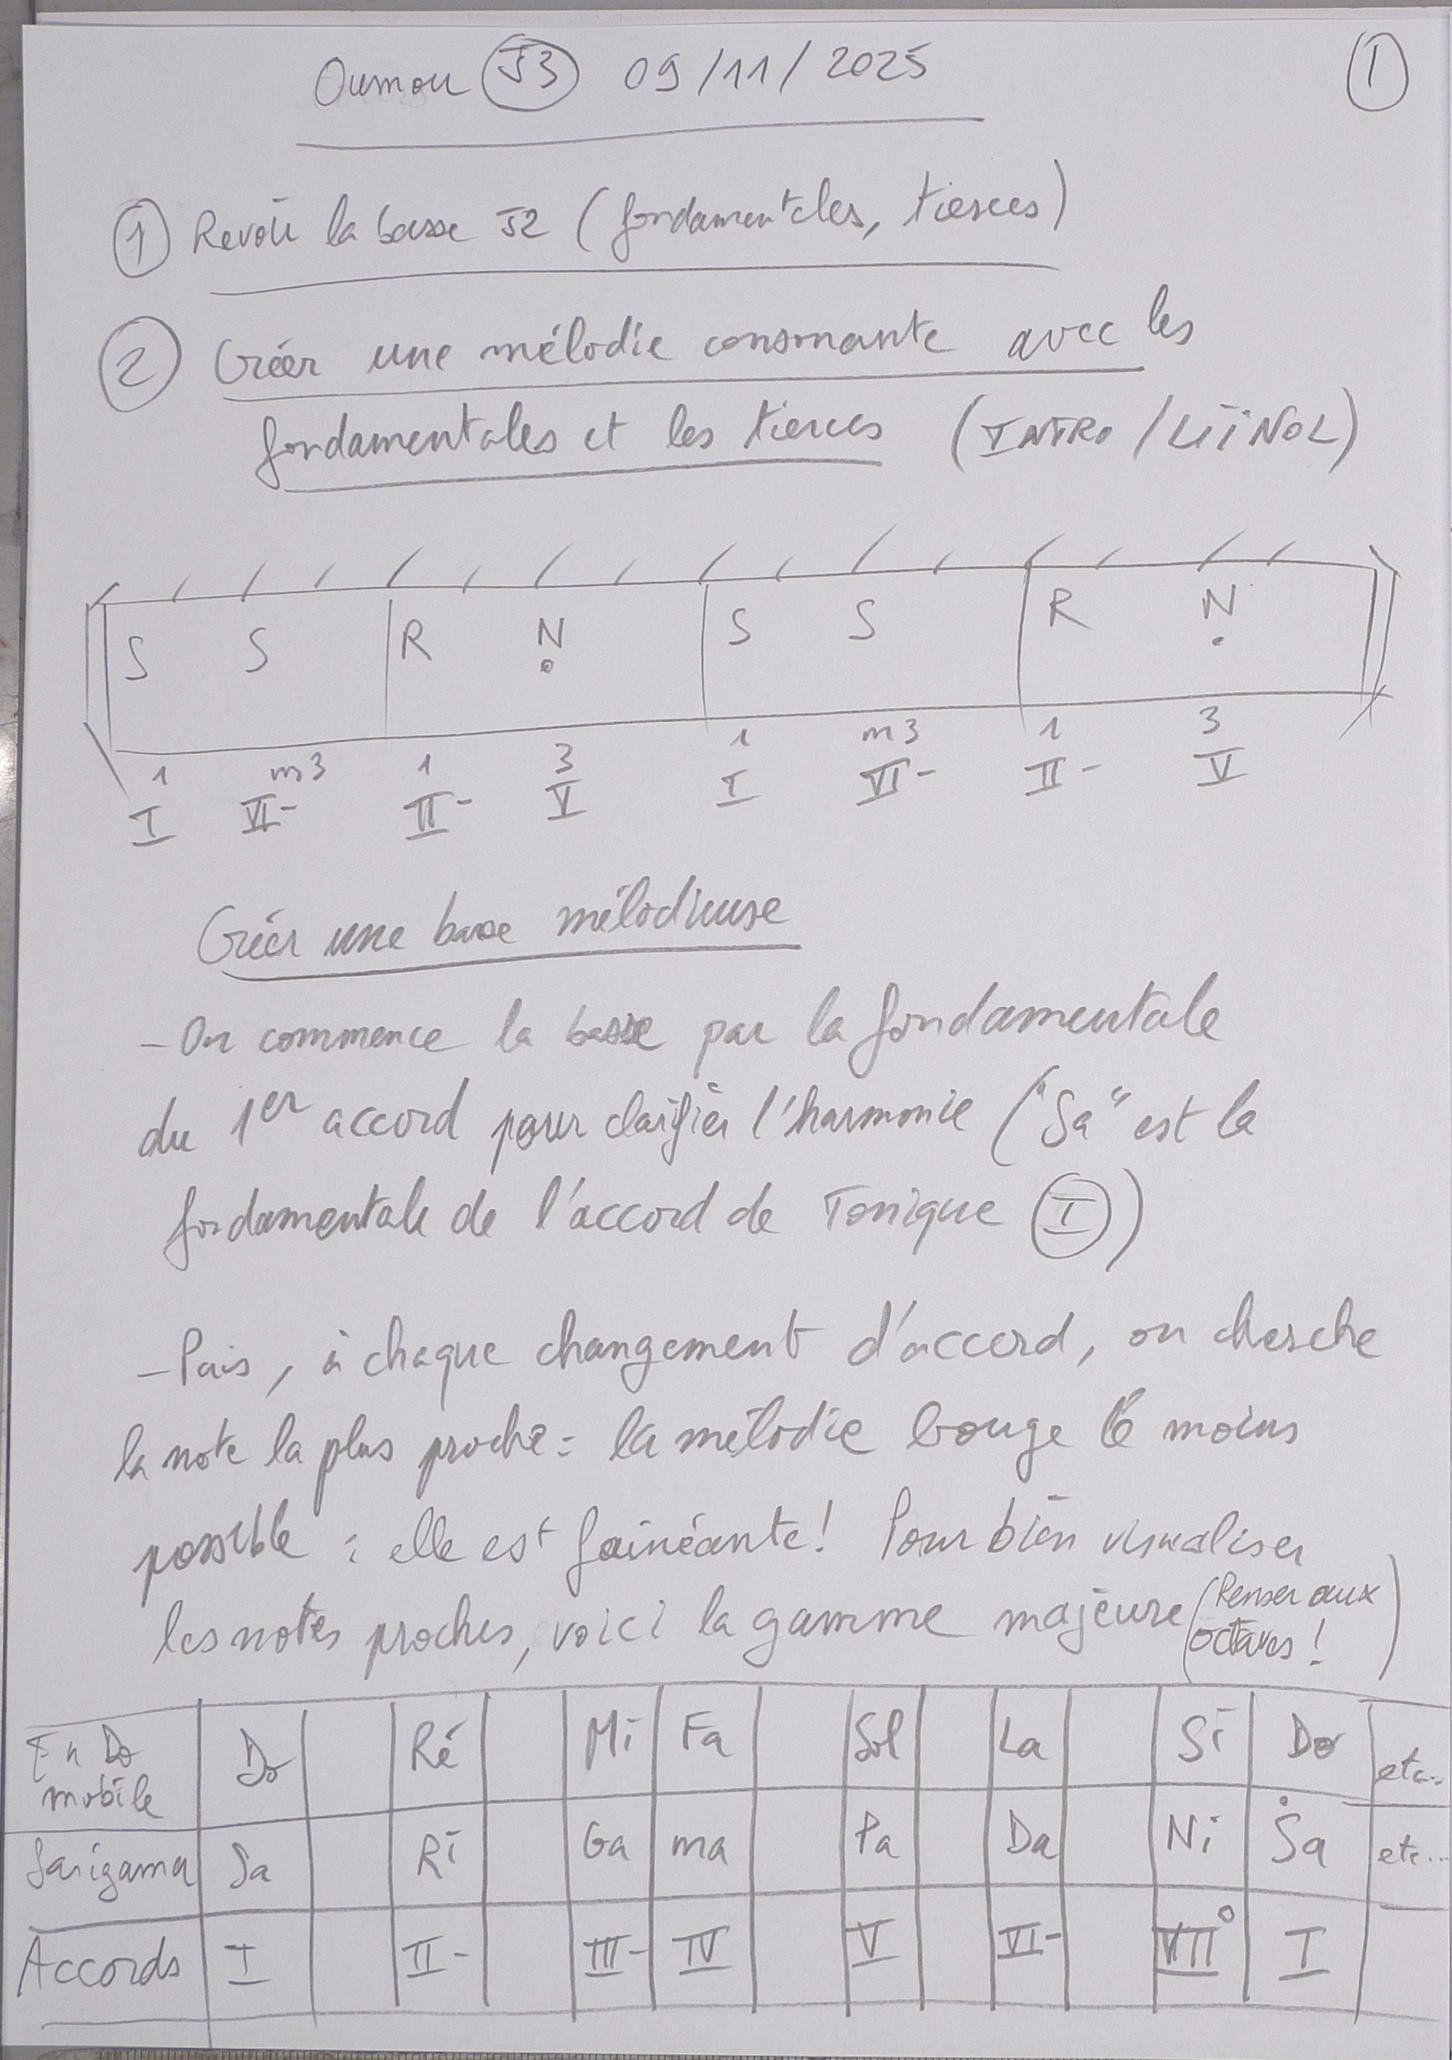 Oumou J3 09/11/2025
1
1 Revoir la basse J2 (fondamentales, tierces)
2 Créer une mélodie consonante avec les
fondamentales et les tierces (INTRO /
S S R Ṇ S S R Ṇ
1 m3 1 3 1 m3 1 3
I VI- II- V I VI- II- V
Créer une basse mélodieuse
- On commence la basse par la fondamentale
du 1er accord pour clarifier l'harmonie ("Sa" est la
fondamentale de l'accord de Tonique I)
- Puis, à chaque changement d'accord, on cherche
la note la plus proche : la mélodie bouge le moins
possible : elle est fainéante ! Pour bien visualiser
les notes proches, voici la gamme majeure (Penser aux
octaves !)
En Do mobile Do Ré Mi Fa Sol La Si Do etc..
Sarigama Sa Ri Ga ma Pa Da Ni Ṡa etc...
Accords I II- III- IV V VI- VII° I